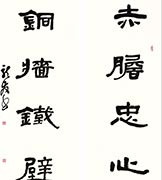 赤膽忠心
銅墻鐵壁